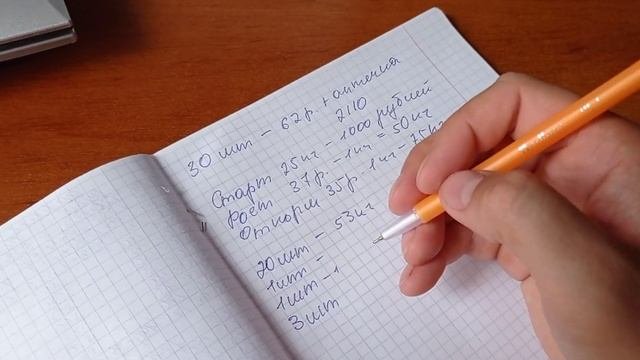 30 шт - 62р. + аптечка
2110
Старт 25кг - 1000 рублей
Рост 37р. - 1кг = 50кг
Откорм 35р. 1кг - 75кг
20шт - 53кг
1шт -
1шт - 1
3шт